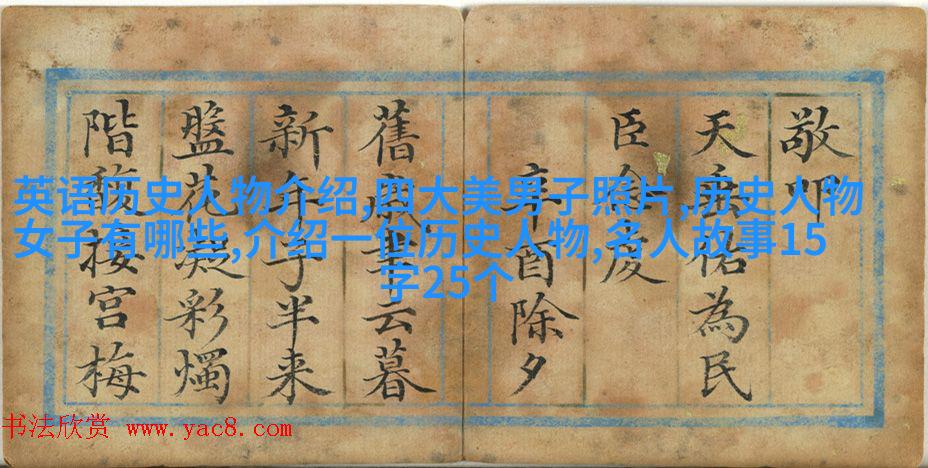 英语历史人物介绍,四大美男子照片,历史人物
女子有哪些,介绍一位历史人物,名人故事15
字25个
敬叩
天垂佑為民
臣
辛酉除夕
舊歲聿云暮
新年子半来
盤花凝彩燭
階馥接宮梅
书法欣赏 www.yac8.com